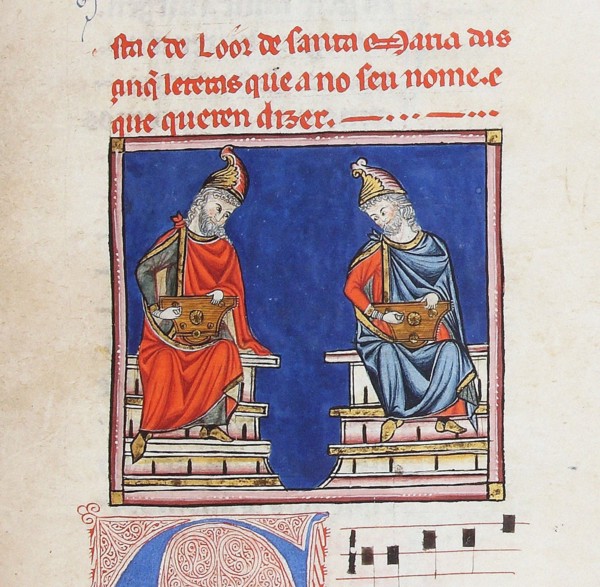 sta e de Loor de santa Maria das
çinq̃ leteras que a no seu nome. e
que queren dizer.